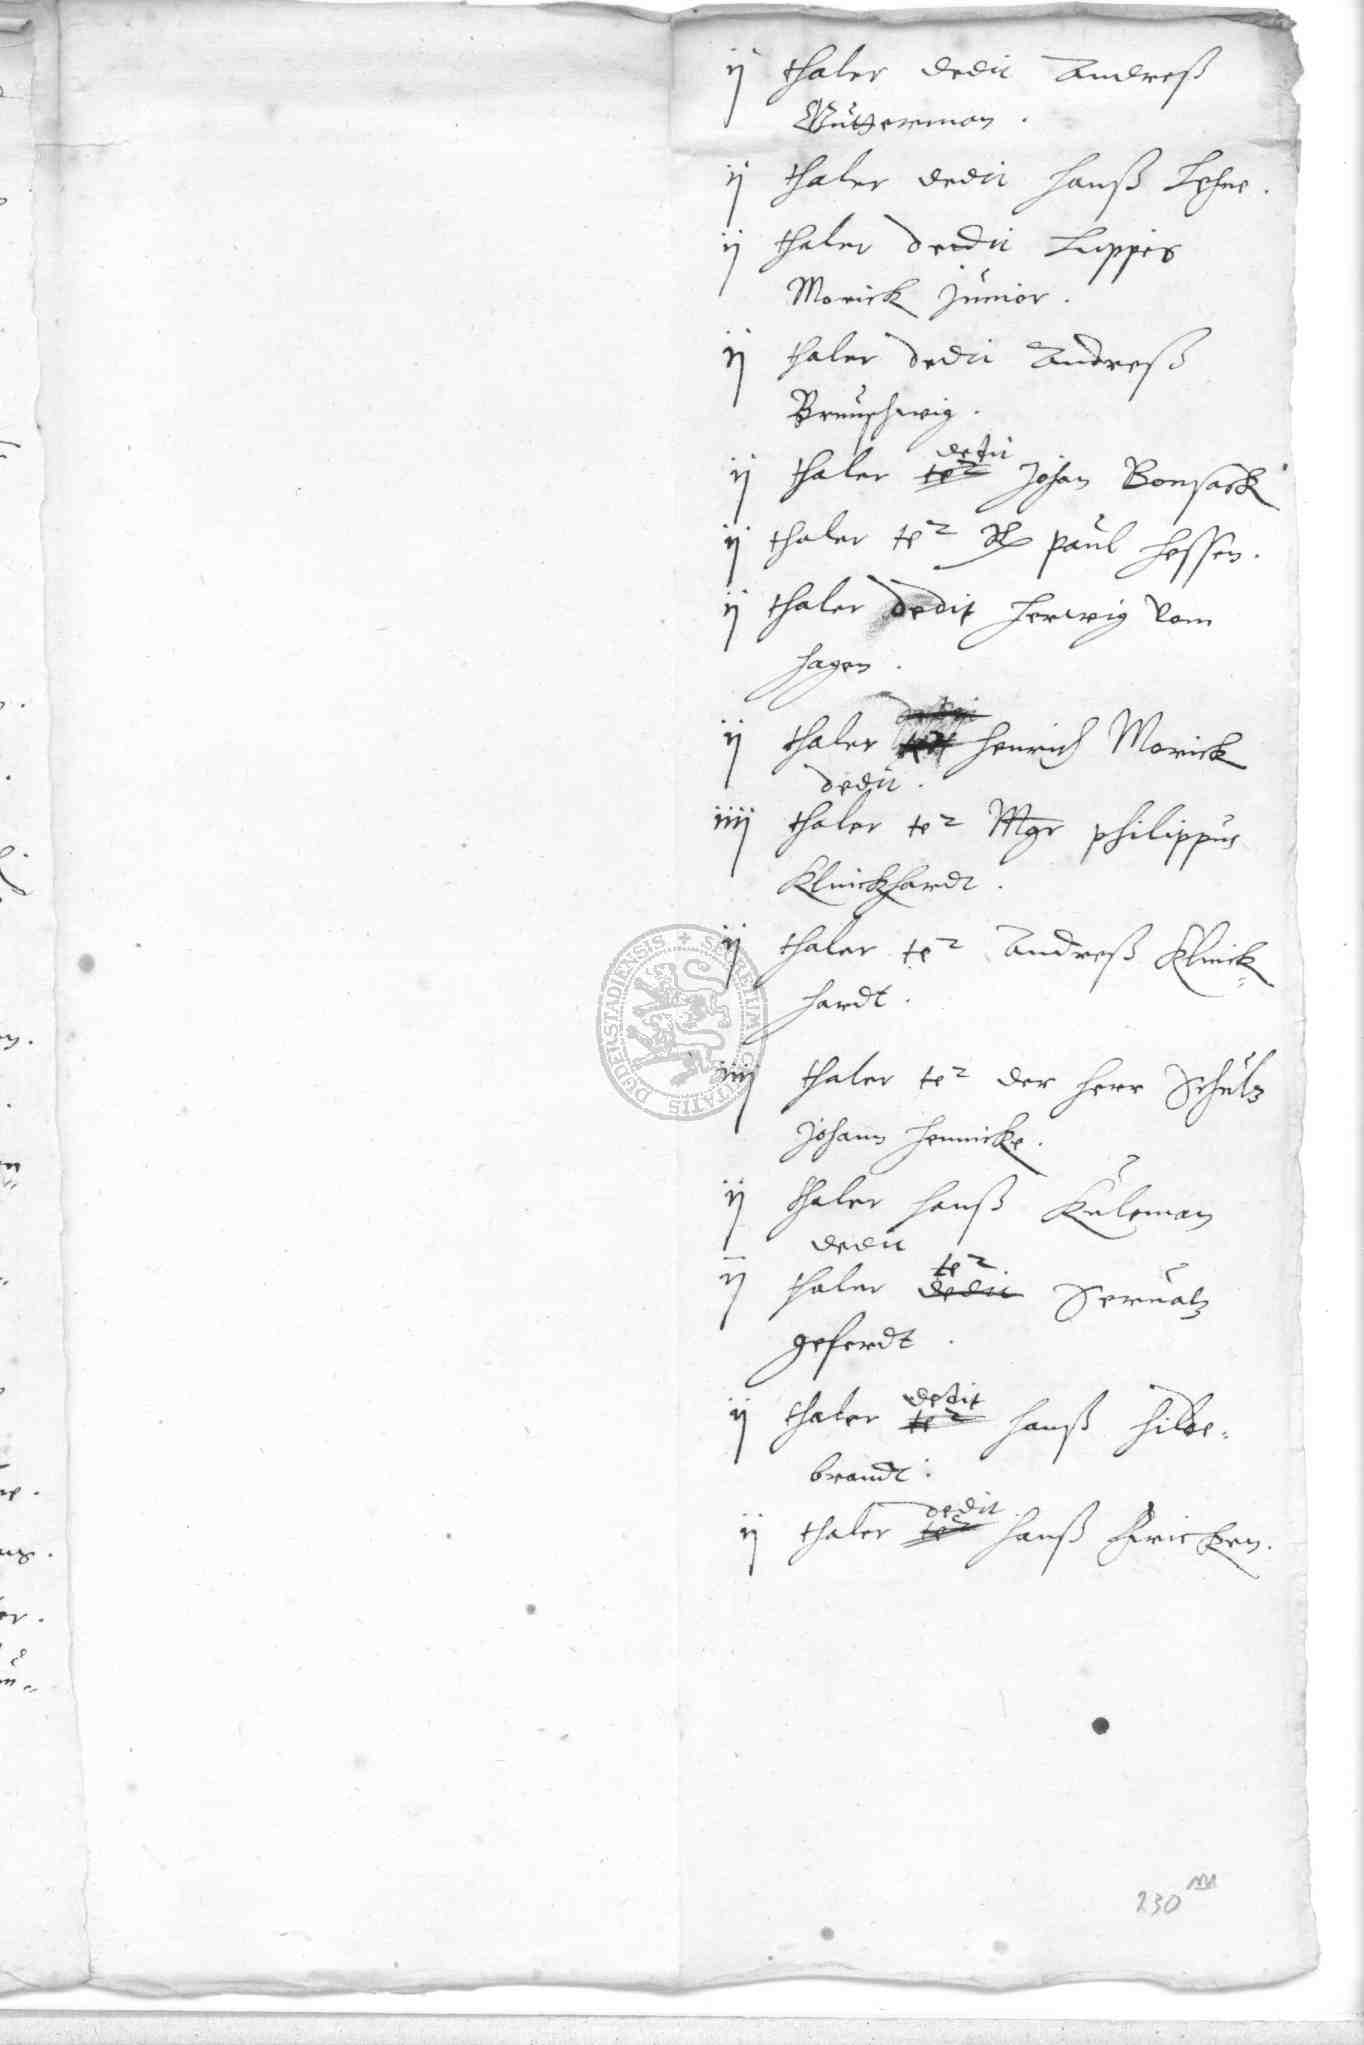 ij thaler dedit Andreß
Wüstereman.
ij thaler dedit Hanß Lehne.
ij thaler dedit Lippes
Morick Junior.
ij thaler dedit Andreß
Brunschwig.
dedit
ij thaler te2 Johan Bonsack
ij thaler te2 Paul Hessen.
ij thaler dedit Herwig vom
Hagen.
ij thaler Henrich Morick
dedit.
iiij thaler te2 Mgr Philippus
Klinckhardt.
ij thaler te2 Andreß Klinck=
hardt.
iiij thaler te2 der Herr Schultz
Johann Hennicke.
ij thaler Hanß Kuleman
dedit
te2
ij thaler dedit Servatz
Geferdt.
dedit
ij thaler te2 Hanß Hilde=
brandt.
dedit
ij thaler te2 Hanß Fricken.
230
SIGILLUM CIVITATIS DUDERSTADIENSIS